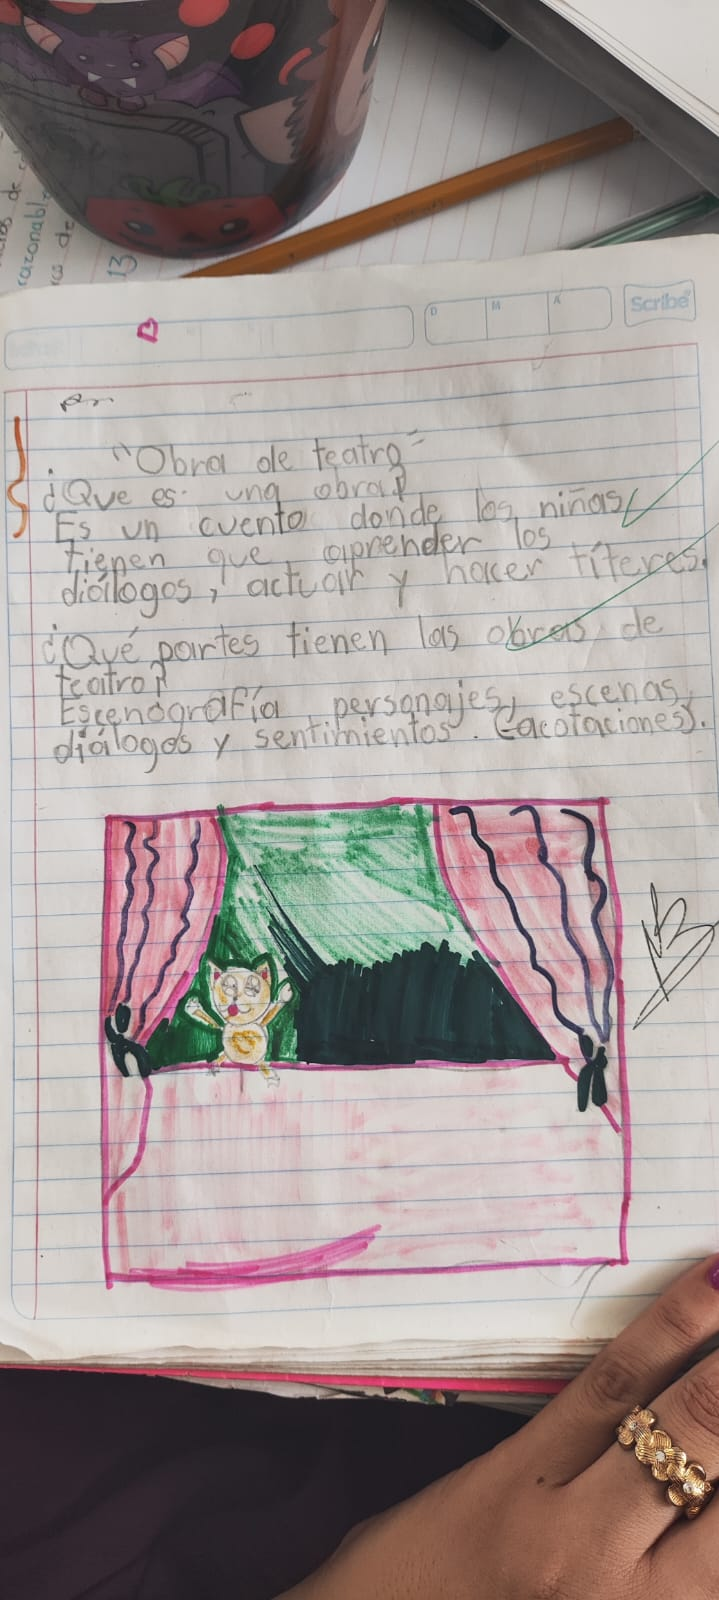 razonable
13
D M A
Scribe
"Obra de teatro"
¿Que es una obra?
Es un cuento donde los niñas
tienen que aprender los
diálogos, actuar y hacer títeres.
¿Qué partes tienen las obras de
teatro?
Escenografía personajes, escenas,
diálogos y sentimientos. (acotaciones).